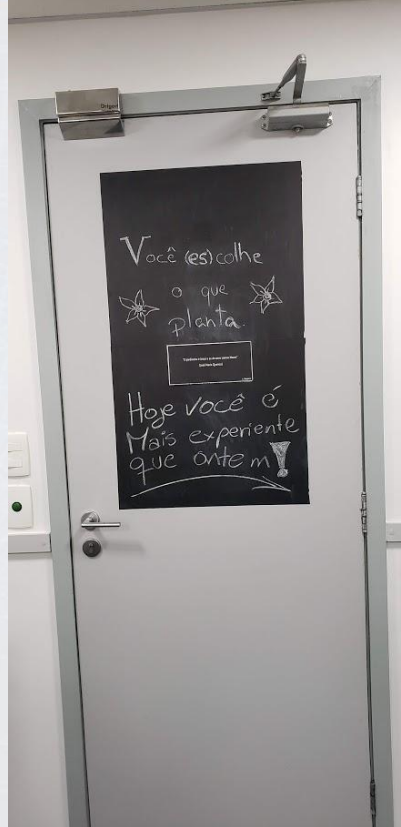 Você (es)colhe
o que
planta.
Hoje você é
Mais experiente
que ontem!